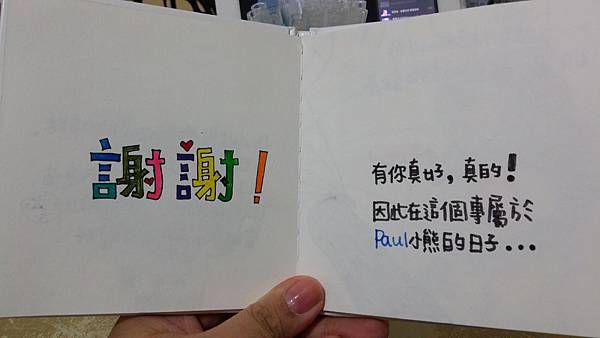 謝謝！
有你真好，真的！
因此在這個專屬於
Paul小熊的日子...